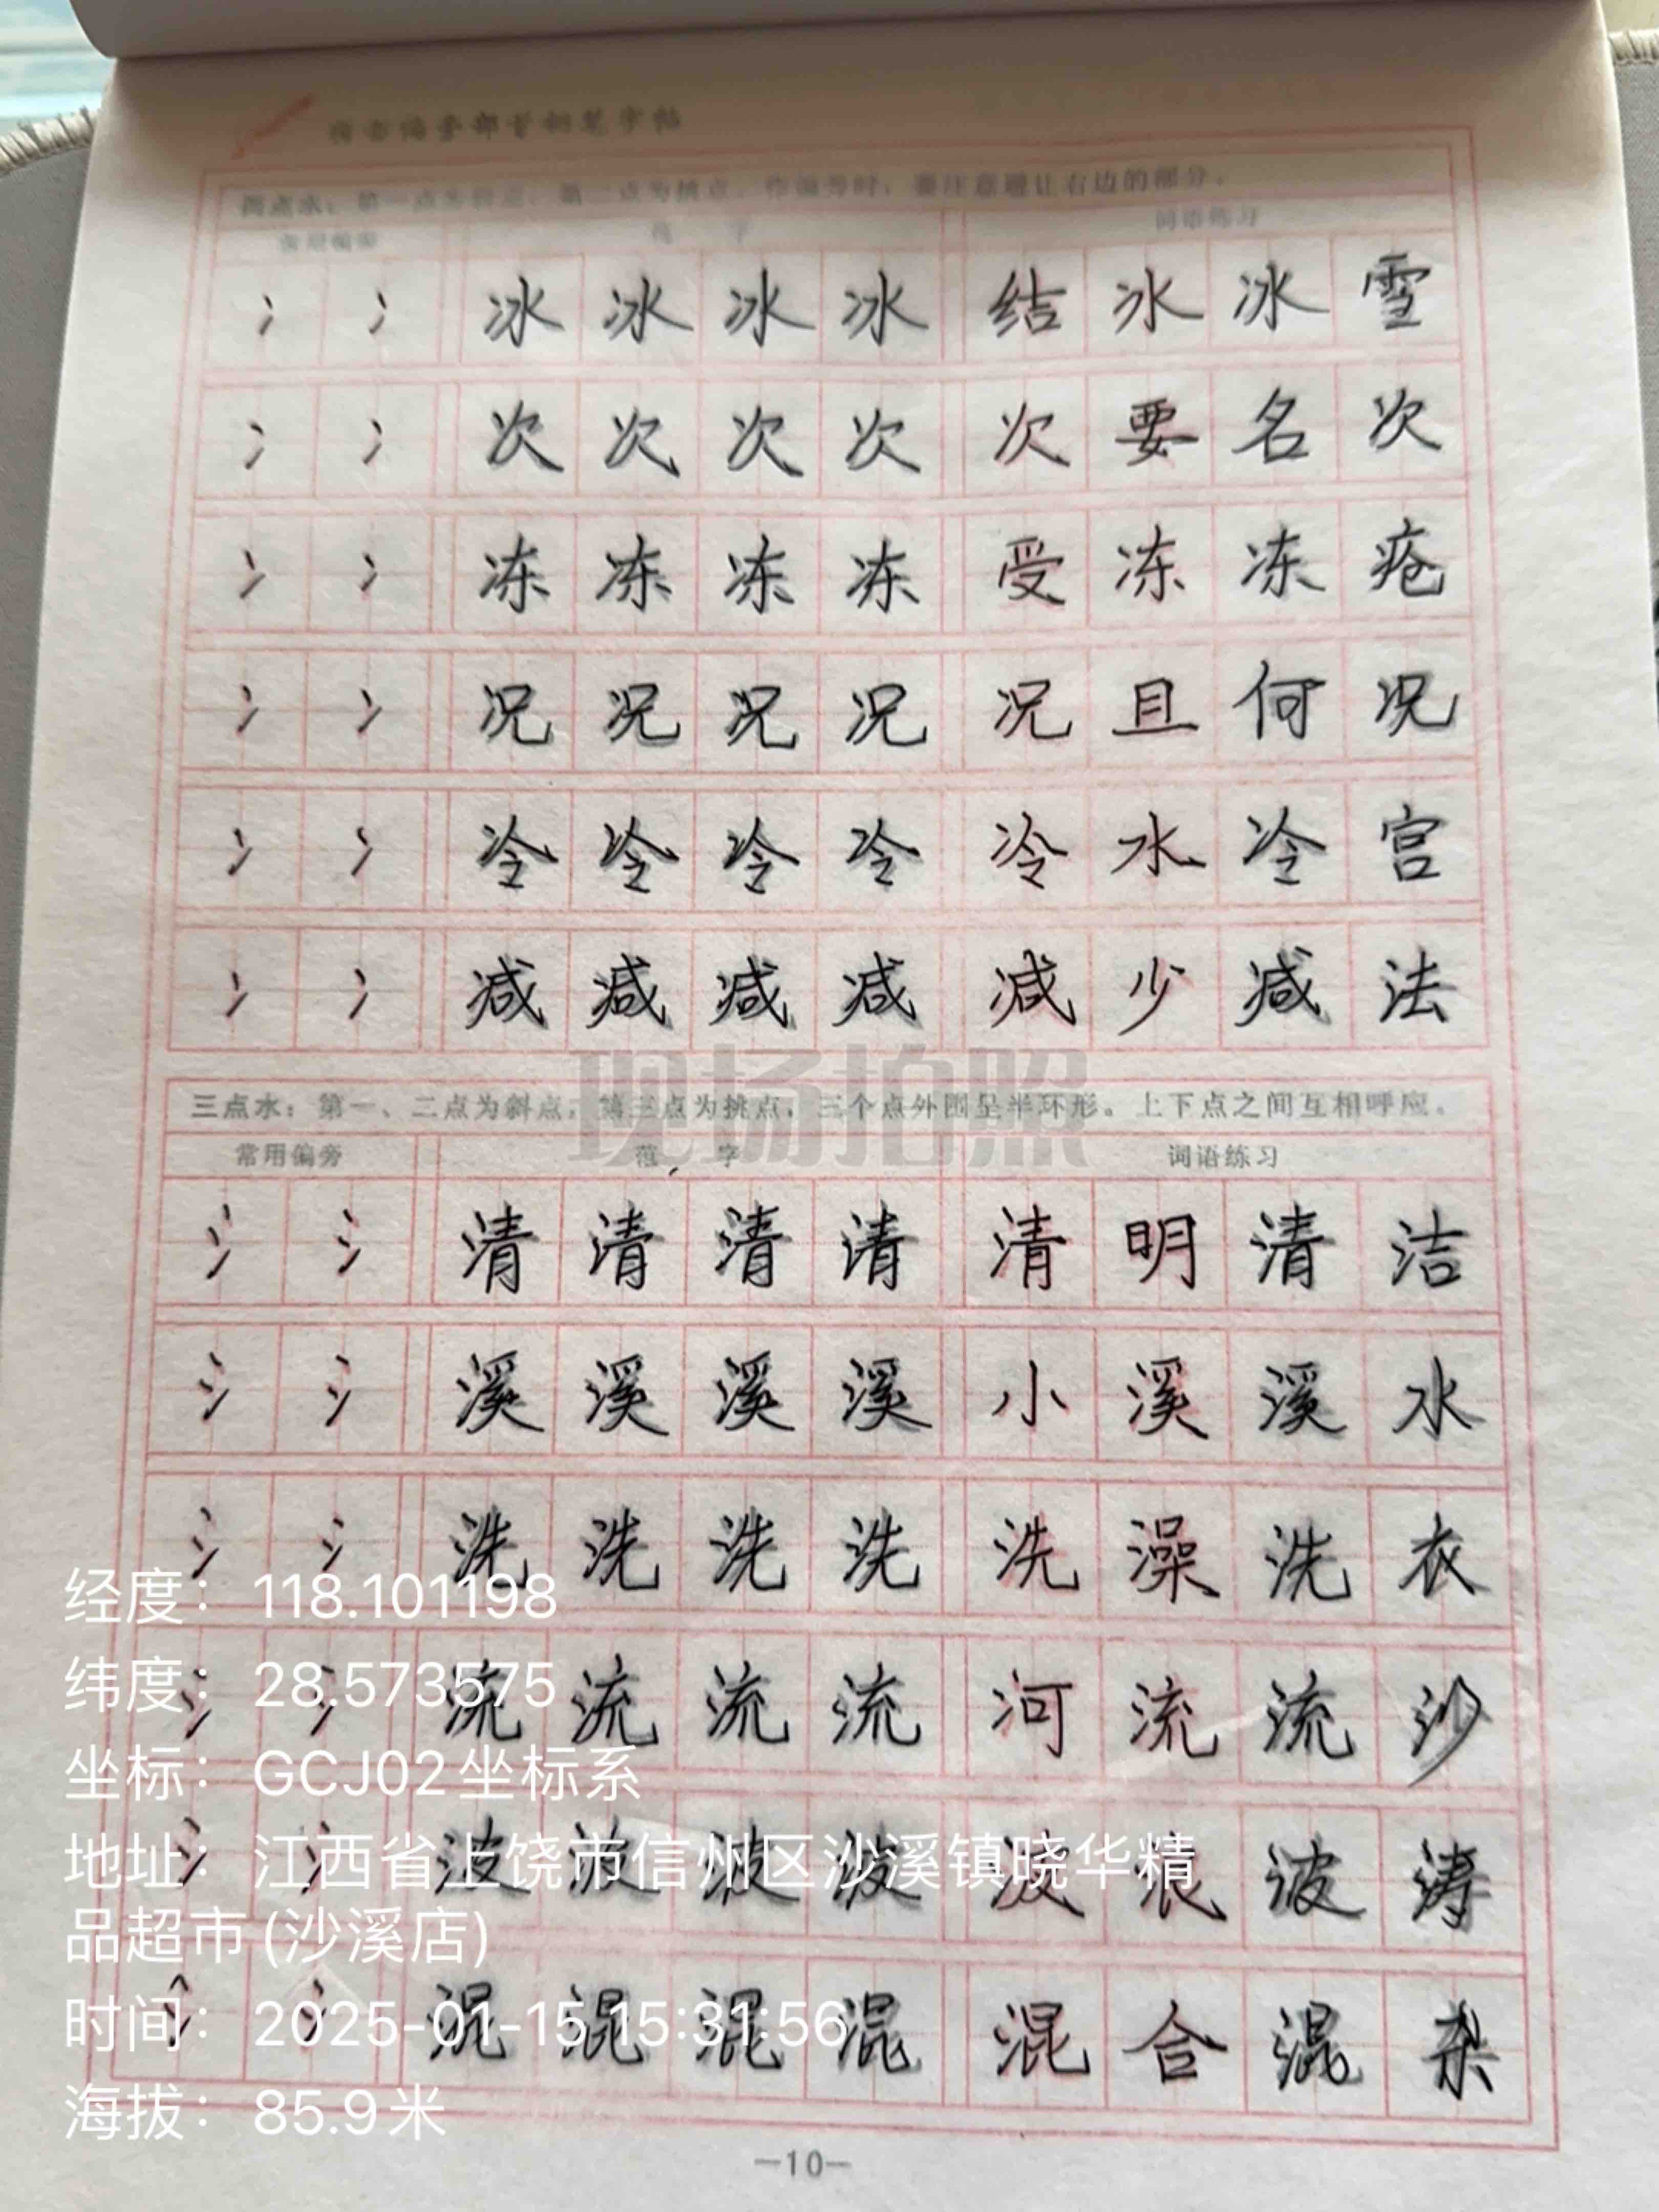 两点水：第一点为斜点，第二点为挑点，作偏旁时，要注意避让右边的部分。
常用偏旁 范 字 词语练习
冫 冫 冰 冰 冰 冰 结 冰 冰 雪
冫 冫 次 次 次 次 次 要 名 次
冫 冫 冻 冻 冻 冻 受 冻 冻 疮
冫 冫 况 况 况 况 况 且 何 况
冫 冫 冷 冷 冷 冷 冷 水 冷 宫
冫 冫 减 减 减 减 减 少 减 法
现场拍照
三点水：第一、二点为斜点，第三点为挑点，三个点外围呈半环形。上下点之间互相呼应。
常用偏旁 范 字 词语练习
氵 氵 清 清 清 清 清 明 清 洁
氵 氵 溪 溪 溪 溪 小 溪 溪 水
氵 氵 洗 洗 洗 洗 洗 澡 洗 衣
经度：118.101198
氵 氵 流 流 流 流 河 流 流 沙
纬度：28.573575
坐标：GCJ02坐标系
氵 氵 波 波 波 波 波 浪 波 涛
地址：江西省上饶市信州区沙溪镇晓华精
品超市(沙溪店)
氵 氵 混 混 混 混 混 合 混 杂
时间：2025-01-15 15:31:56
海拔：85.9米
—10—